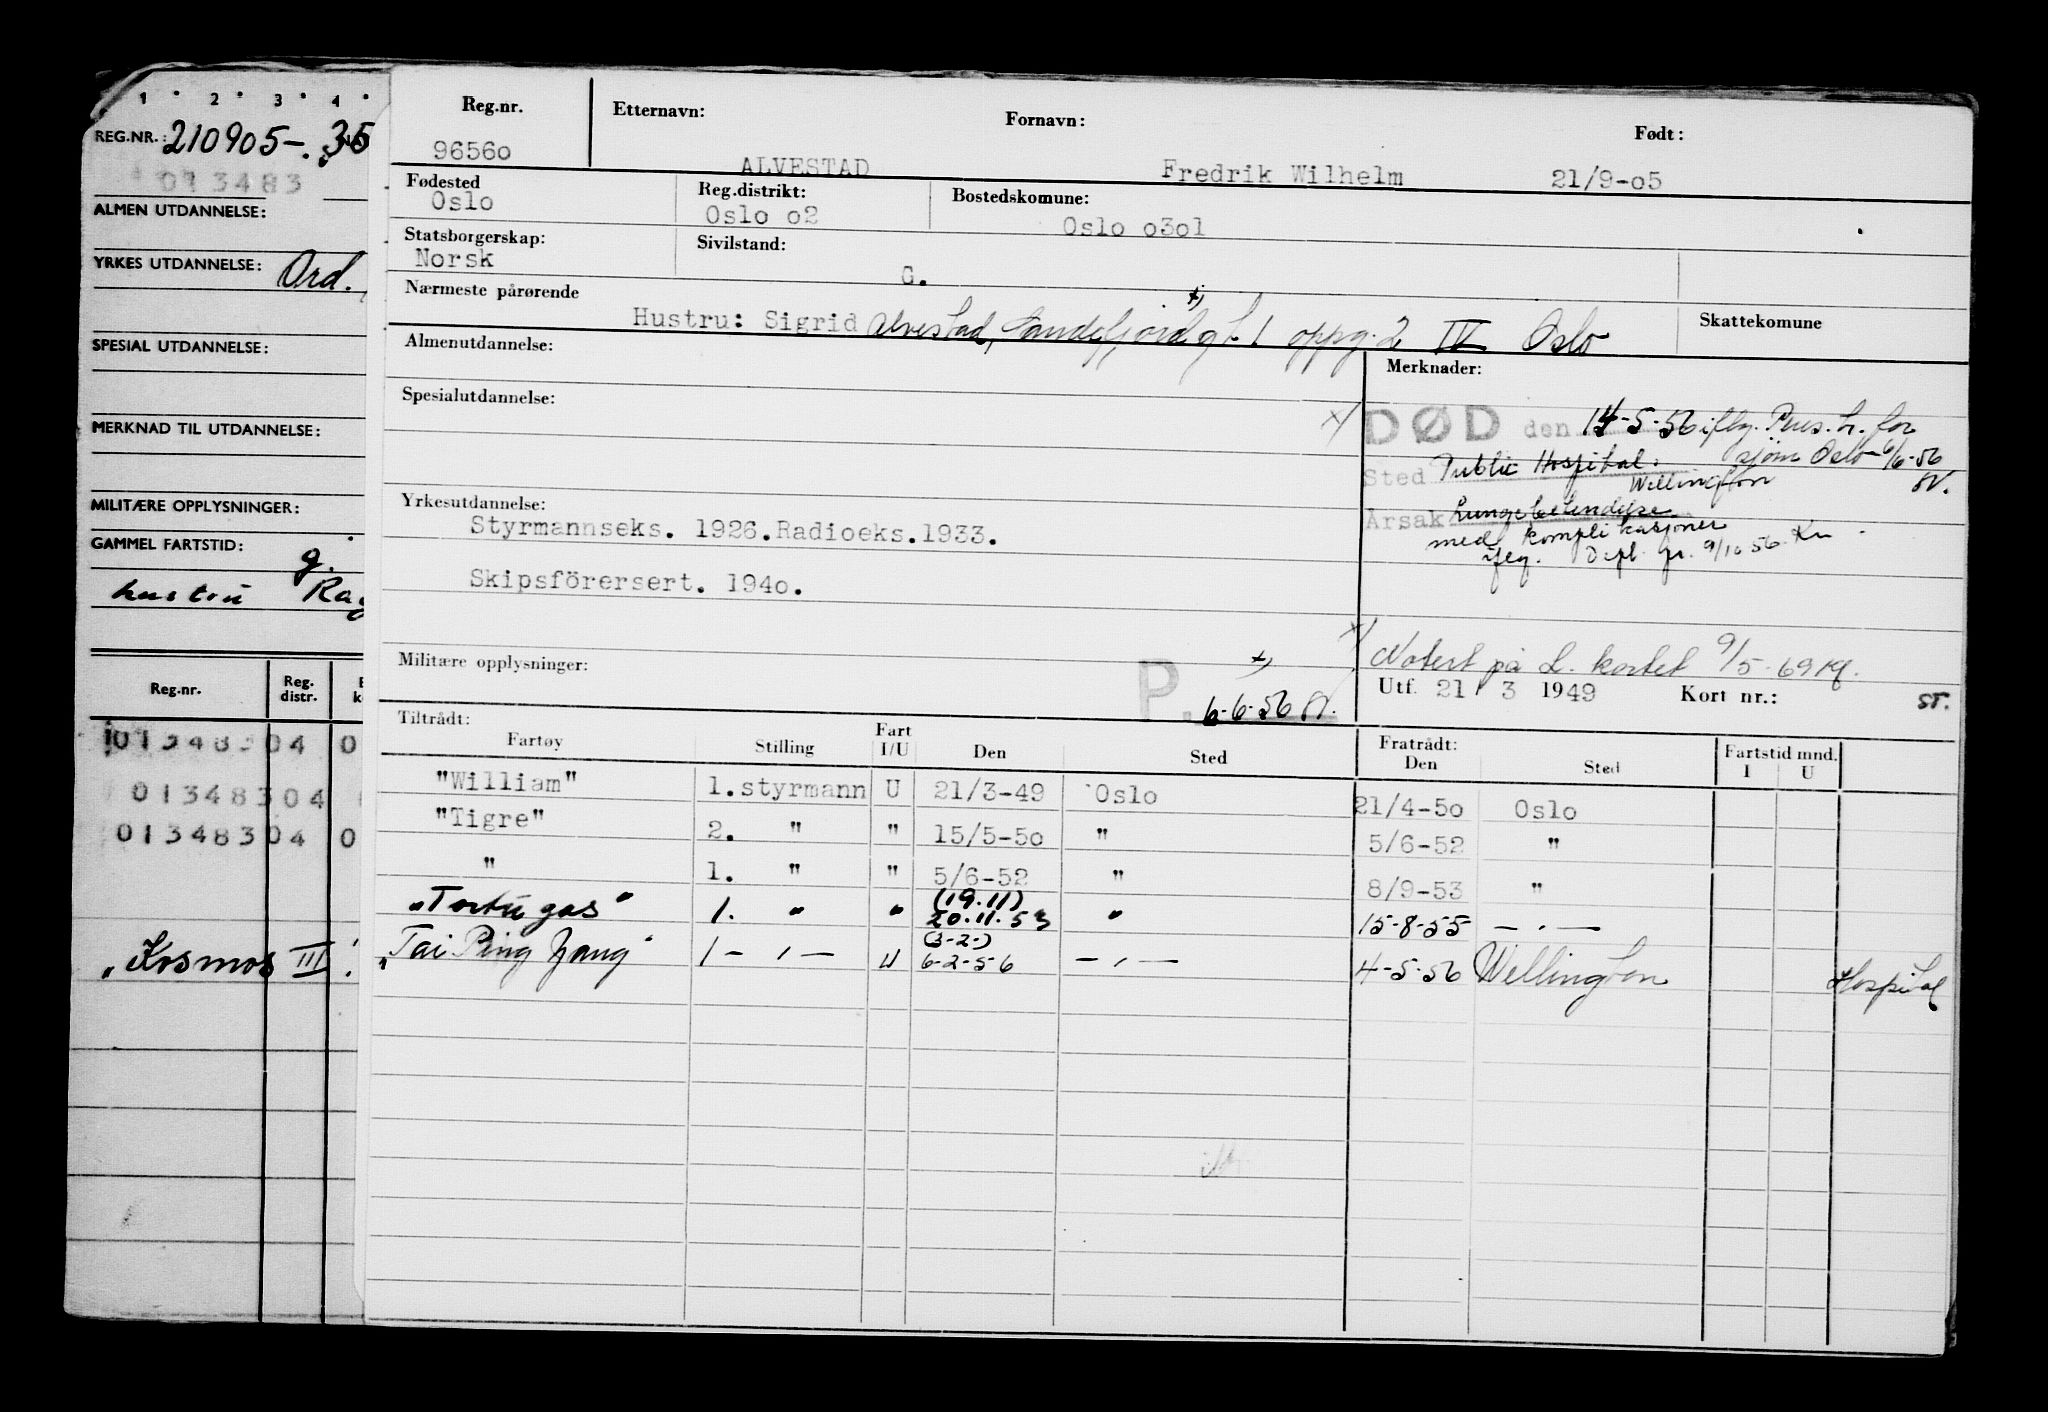 1 . 2 . 3 . 4 .
REG.NR.: 210905-. 35
013483
ALMEN UTDANNELSE:
YRKES UTDANNELSE: Ord.
SPESIAL UTDANNELSE:
MERKNAD TIL UTDANNELSE:
MILITÆRE OPPLYSNINGER:
GAMMEL FARTSTID: g.
hustru Rag
Reg.nr. Reg. distr.
013483 04 0
013483 04
013483 04 0
"Kosmos III"
Reg.nr. Etternavn: Fornavn: Født:
96560 ALVESTAD Fredrik Wilhelm 21/9-05
Fødested Reg.distrikt: Bostedskomune:
Oslo Oslo 02 Oslo 0301
Statsborgerskap: Sivilstand:
Norsk G.
Nærmeste pårørende x)
Hustru: Sigrid Alvestad, Sandefjordgt. 1 oppg. 2 IV Oslo Skattekomune
Almenutdannelse: Merknader:
Spesialutdannelse:
x) DØD den 14-5-56 iflg. for
sjøm Oslo 6/6-56
Sted Public Hospital. Wellington
Årsak Lungebetendelse
med komplikasjoner
9/10 56
Yrkesutdannelse:
Styrmannseks. 1926. Radioeks. 1933.
Skipsförersert. 1940.
x) Notert på L. kortet 9/5-69
Militære opplysninger: P. x) 6-6-56
Utf. 21 3 1949 Kort nr.:
Tiltrådt: Fratrådt: Fartstid mnd.
Fartøy Stilling Fart I/U Den Sted Den Sted I U
"William" 1.styrmann U 21/3-49 Oslo 21/4-50 Oslo
"Tigre" 2. " " 15/5-50 " 5/6-52 "
" 1. " " 5/6-52 " 8/9-53 "
"Tortugas" 1. " " (19.11) 20.11.53 " 15-8-55 — . —
"Tai Ping Yang" 1 - , — U (3-2-) 6-2-56 — , — 4-5-56 Wellington Hospital